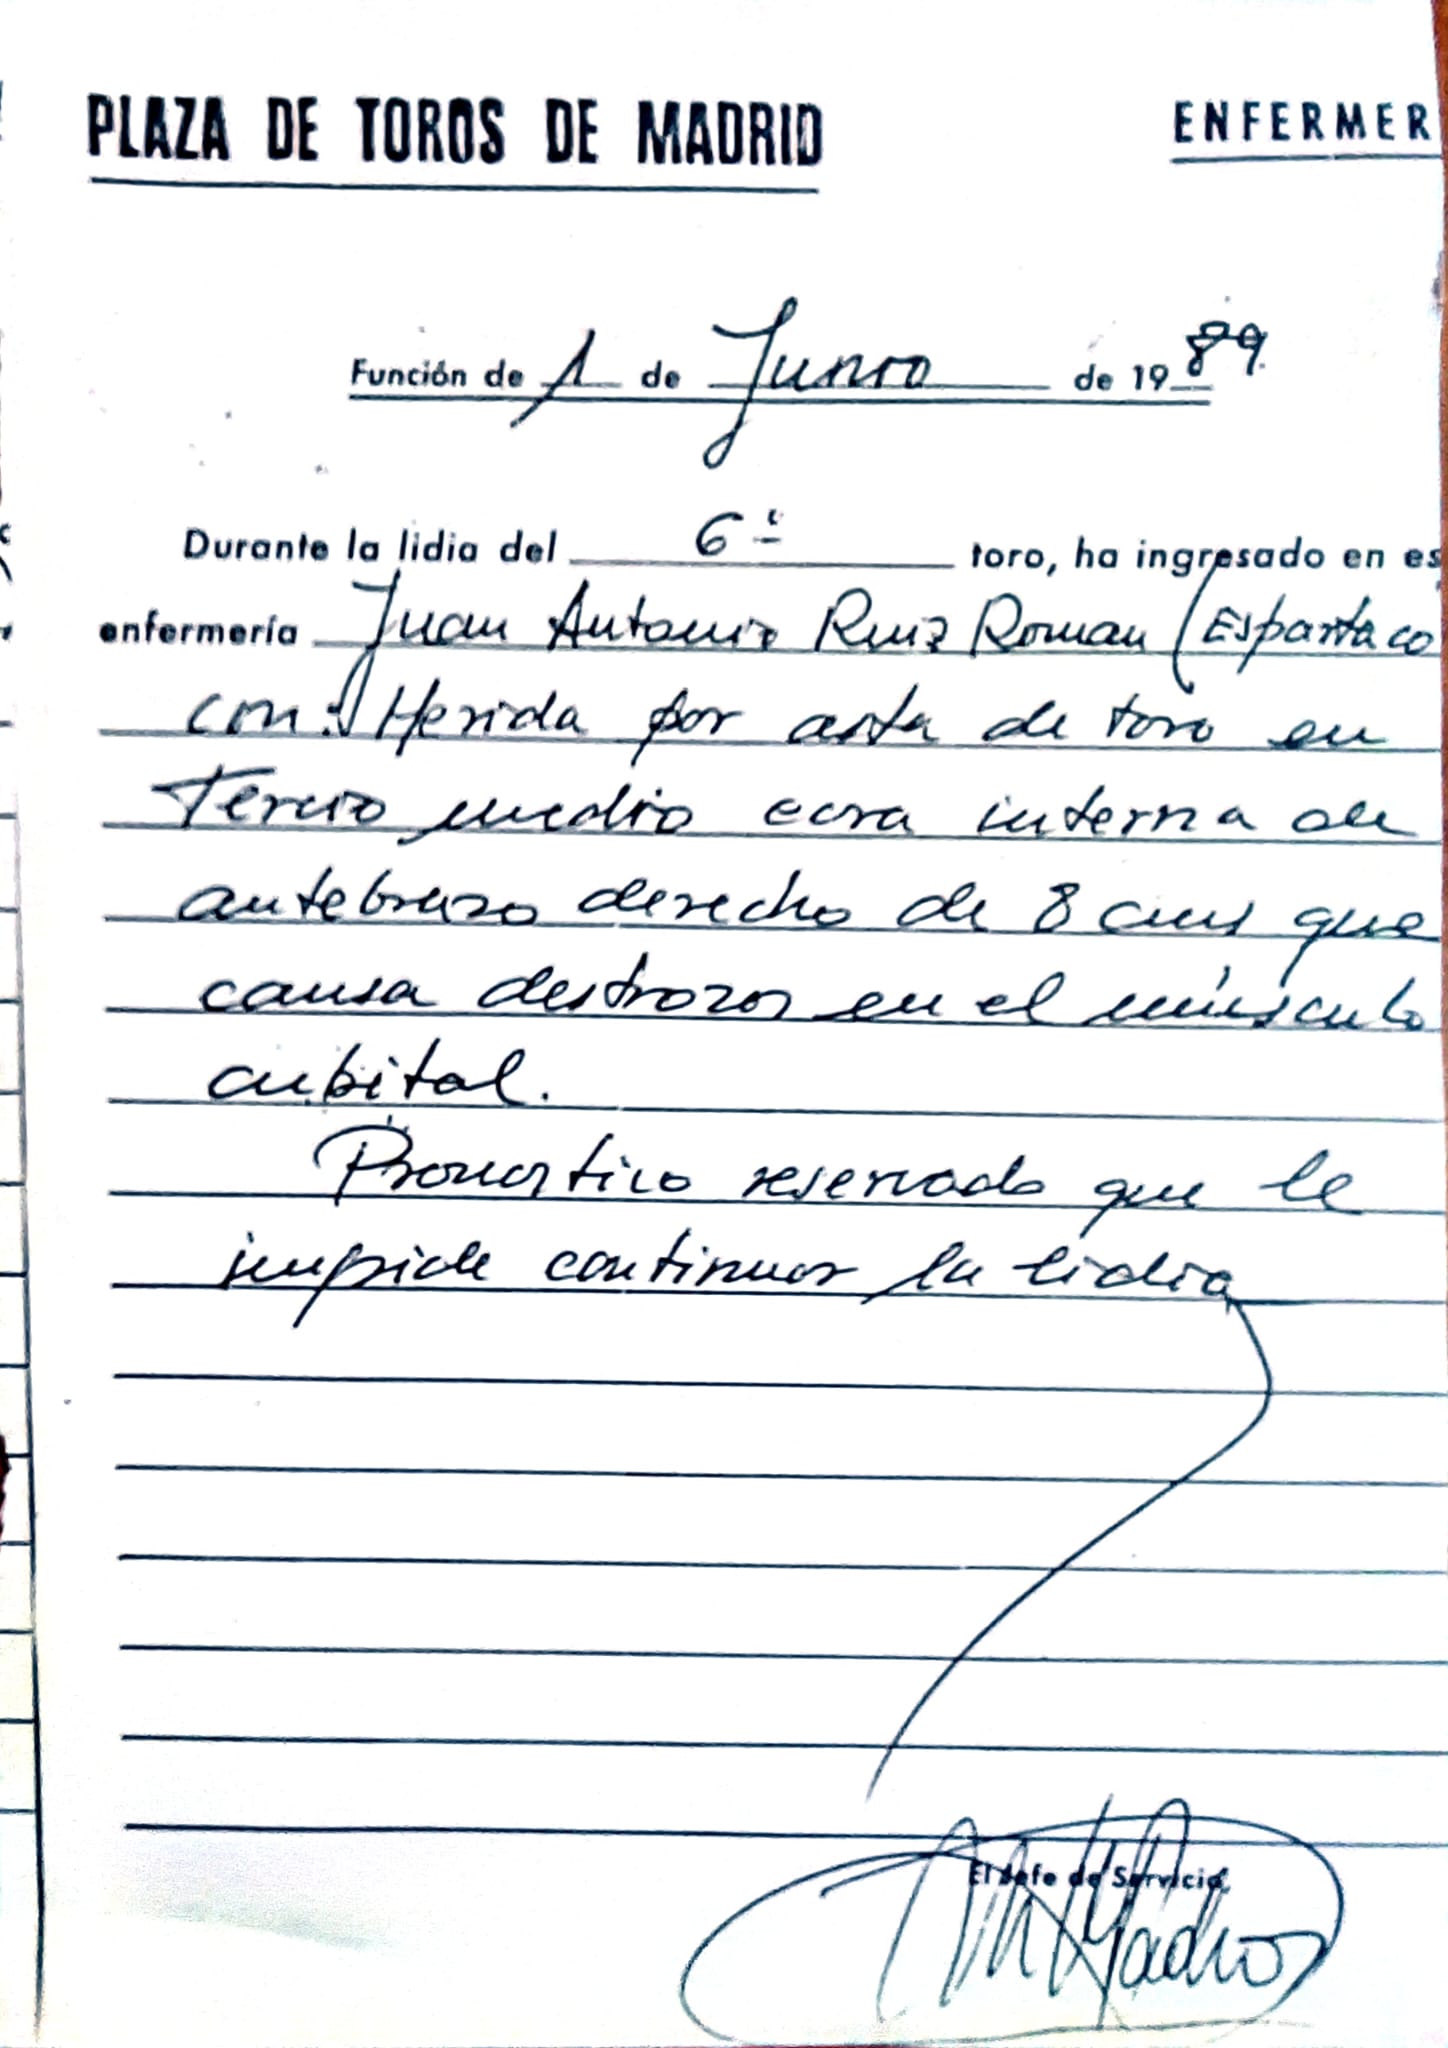 PLAZA DE TOROS DE MADRID
ENFERMER
Función de 1 de Junio de 1989.
Durante la lidia del 6º toro, ha ingresado en es
enfermería Juan Antonio Ruiz Roman (Espartaco
con: Herida por asta de toro en
Tercio medio cara interna de
antebrazo derecho de 8 cms que
causa destrozos en el músculo
cubital.
Pronostico reservado que le
impide continuar la lidia
El Jefe de Servicio,